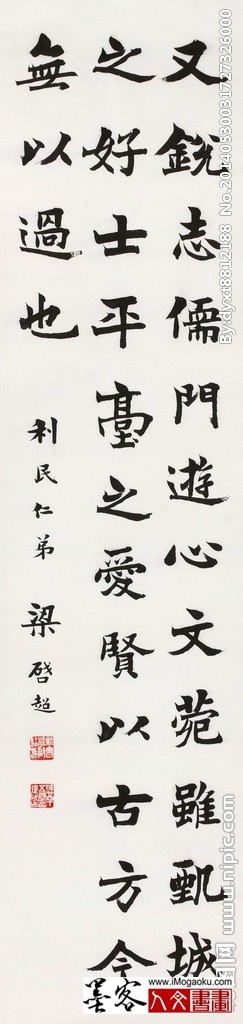 又銳志儒門遊心文菀雖甄城
之好士平臺之愛賢以古方今
無以過也
利民仁弟 梁啓超
By:dyxt8812188 No.20140530031727326000
www.nipic.com
www.iMogaoku.com
墨客
人文書畫